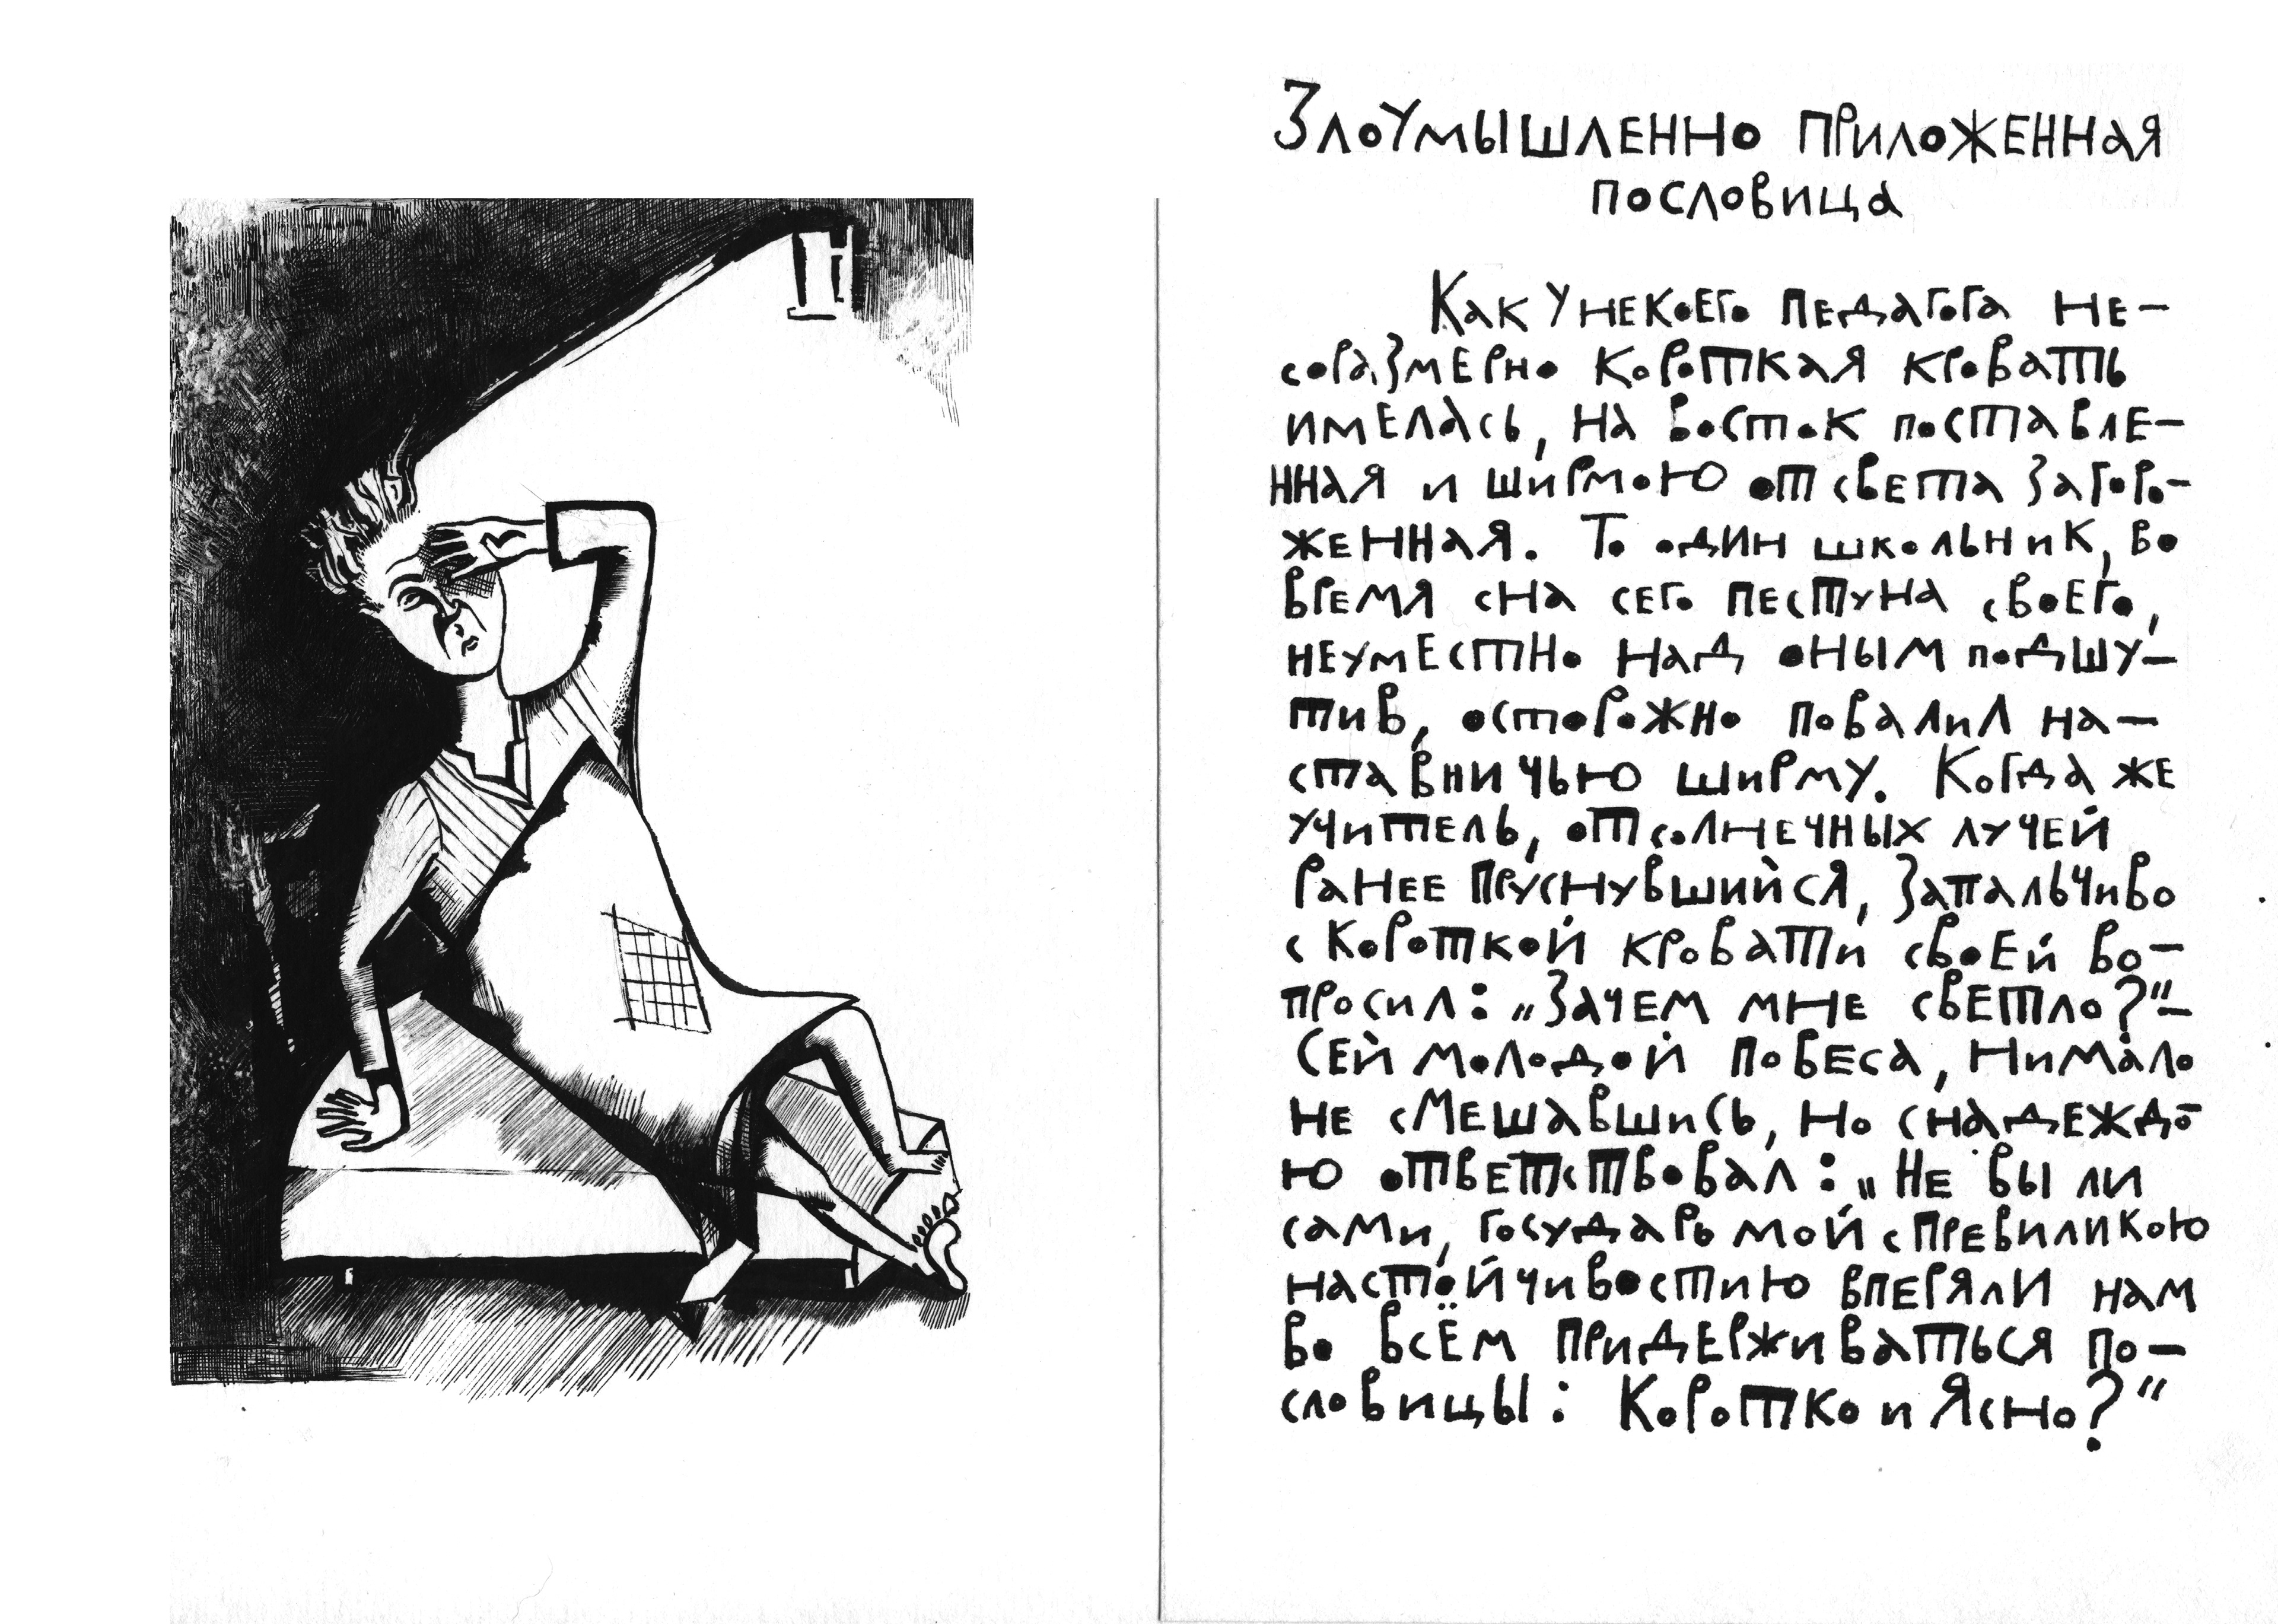 Злоумышленно приложенная
пословица
Как у некоего педагога не-
соразмерно короткая кровать
имелась, на восток поставле-
нная и ширмою от света загоро-
женная. То один школьник, во
время сна сего пестуна своего,
неуместно над оным подшу-
тив, осторожно повалил на-
ставничью ширму. Когда же
учитель, от солнечных лучей
ранее пруснувшийся, запальчиво
с короткой кровати своей во-
просил: „Зачем мне светло?“-
Сей молодой повеса, нимало
не смешавшись, но с надеждо
ю ответствовал: „Не вы ли
сами, государь мой с превиликою
настойчивостию вперяли нам
во всём придерживаться по-
словицы: Коротко и Ясно?“